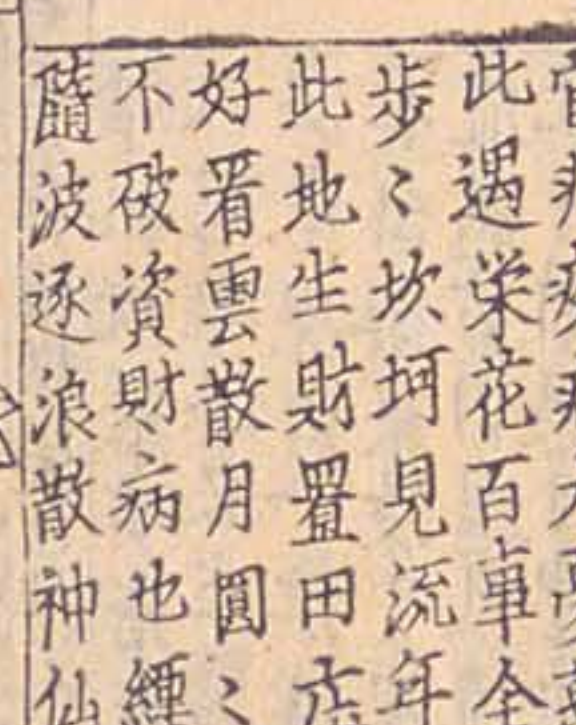 此遇栄花百事全
步〻坎坷見流年
此地生財置田庄
好看雲散月圓〻
不破資財病也纏
隨波逐浪散神仙